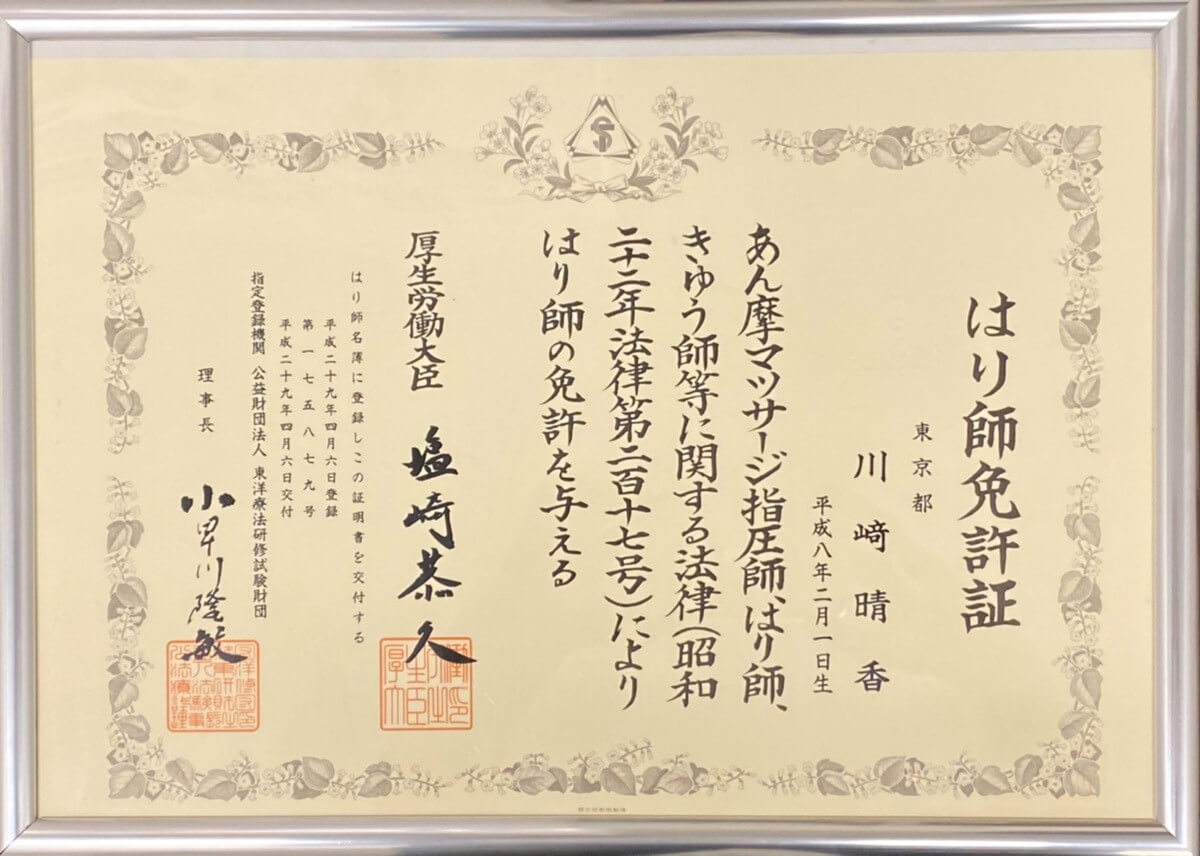 はり師免許証
東京都
川﨑晴香
平成八年二月一日生
あん摩マツサージ指圧師、はり師、
きゆう師等に関する法律(昭和
二十二年法律第二百十七号)により
はり師の免許を与える
厚生労働大臣 塩崎恭久
はり師名簿に登録しこの証明書を交付する
平成二十九年四月六日登録
第一七五八七九号
平成二十九年四月六日交付
指定登録機関 公益財団法人 東洋療法研修試験財団
理事長 小早川隆敏